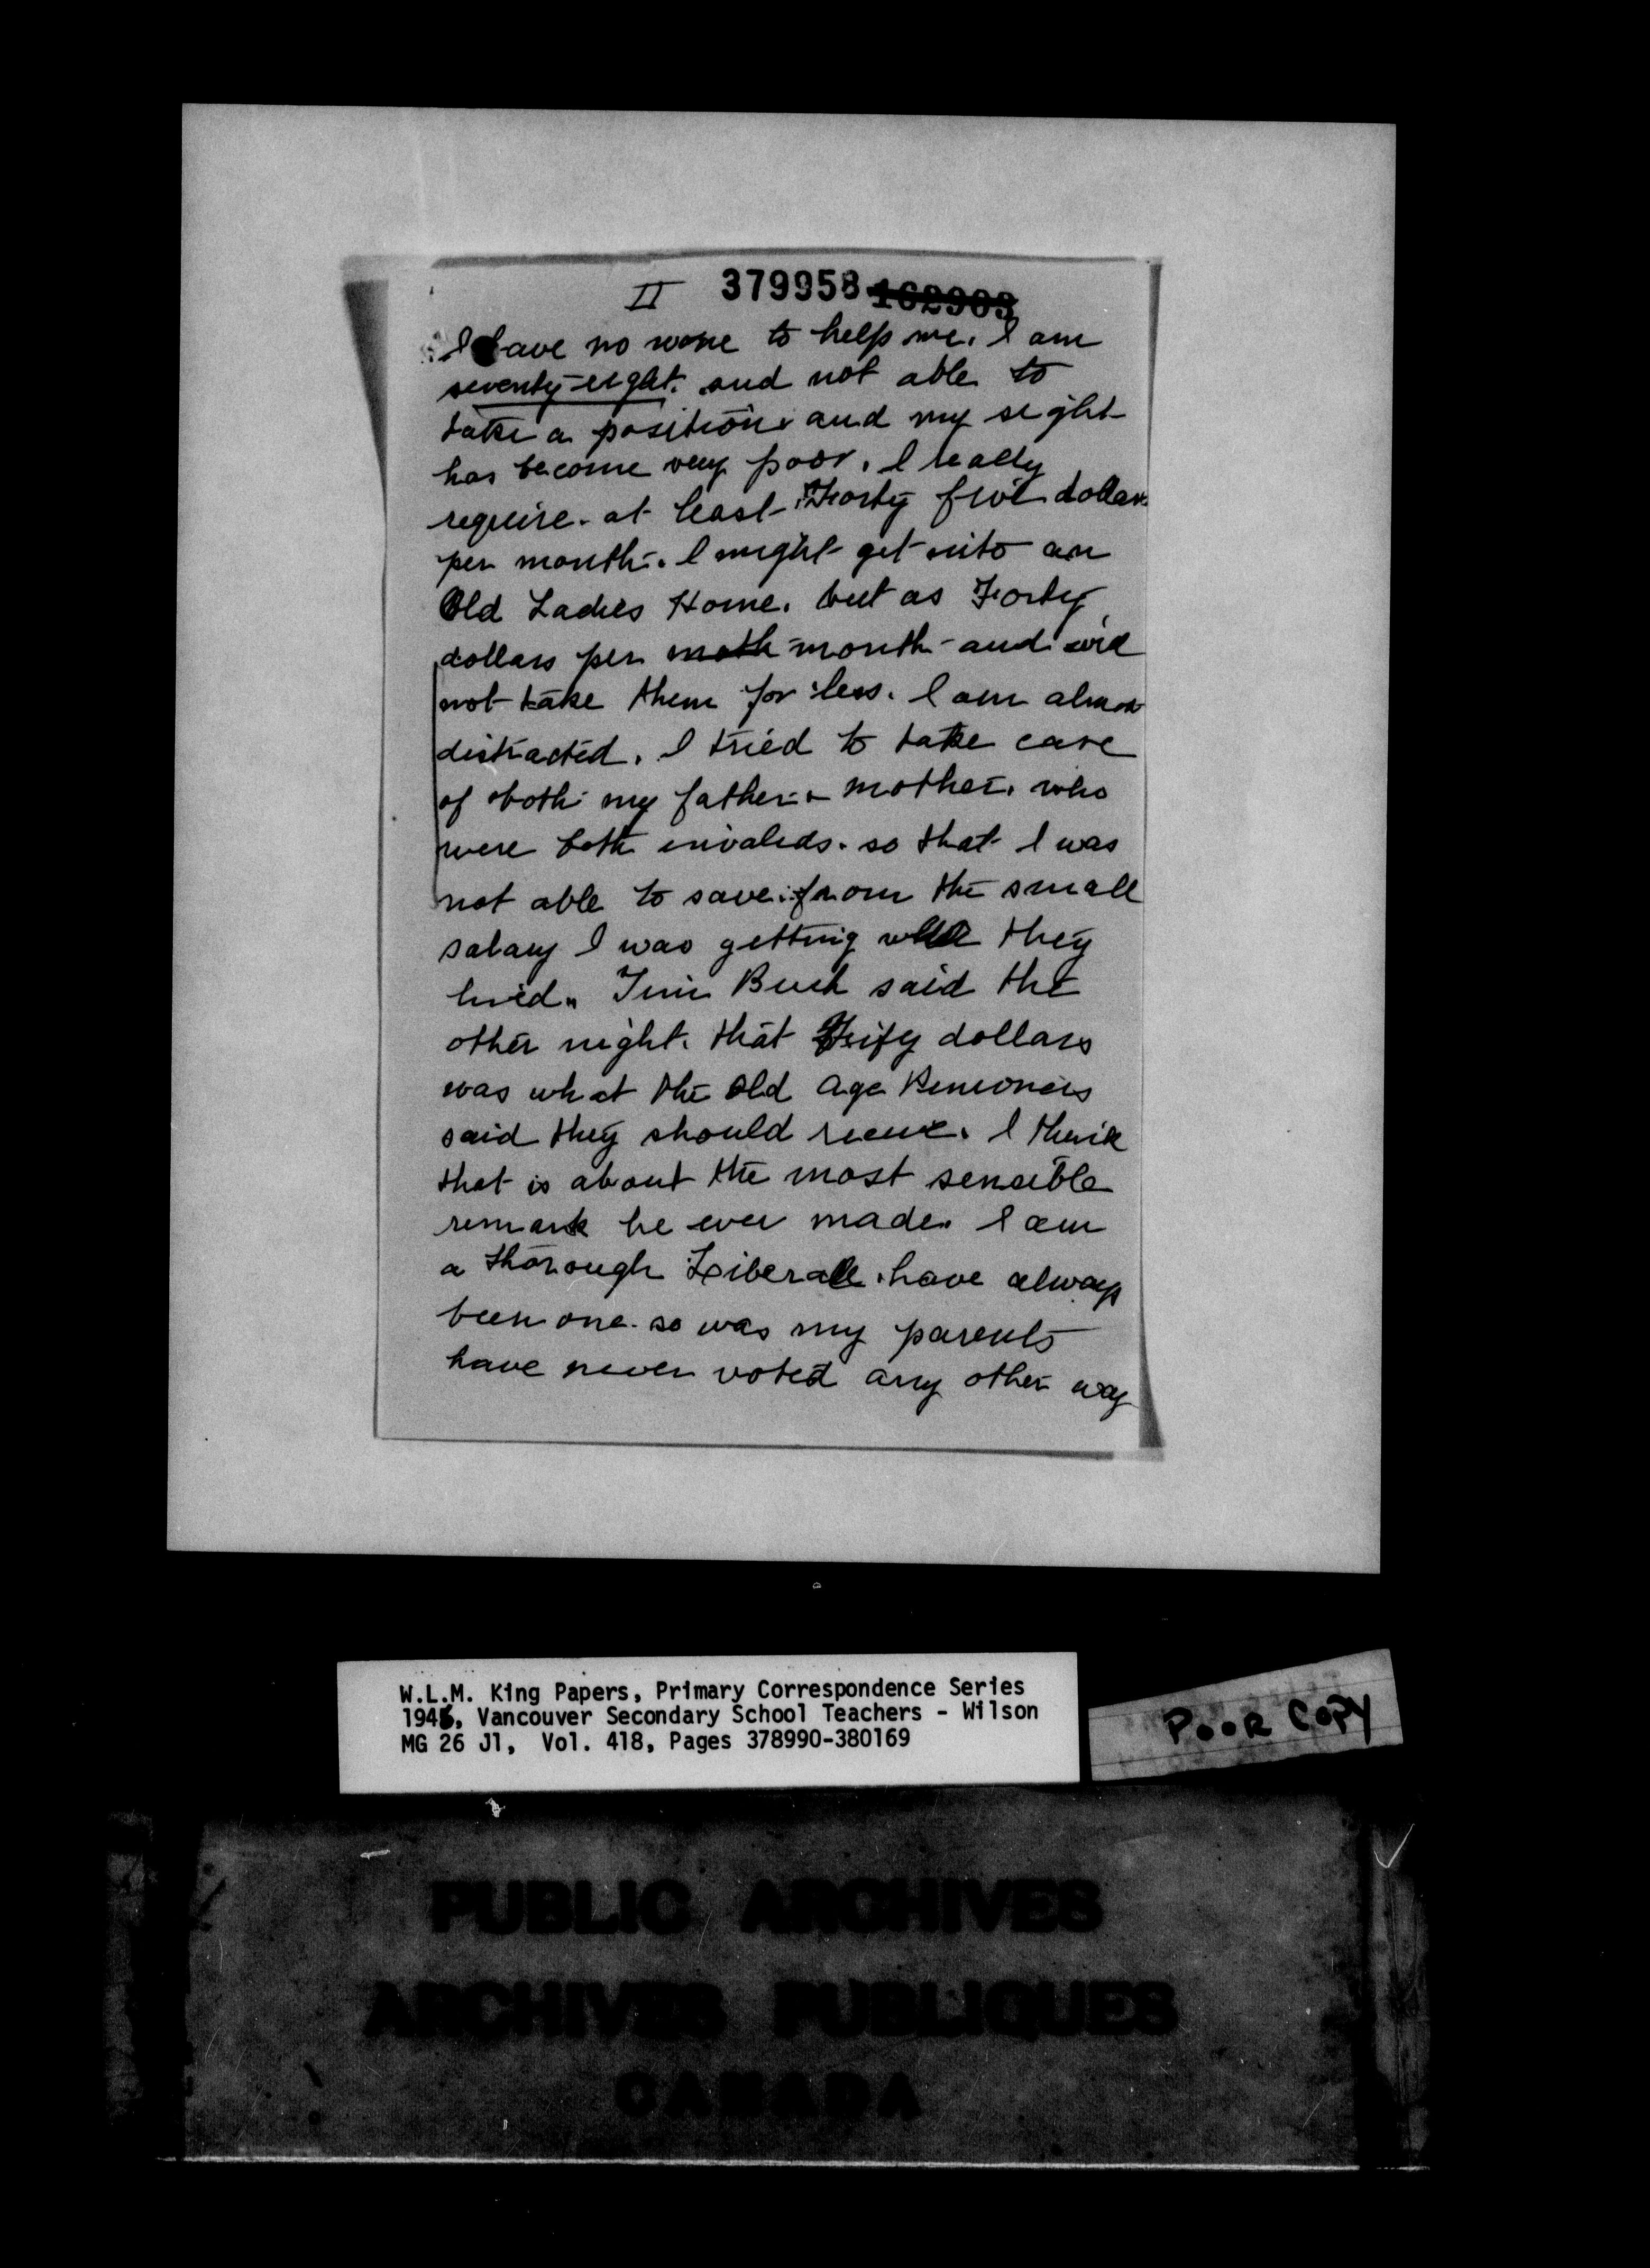 II 379958 162903
I have no wone to help me. I am
seventy-eight. and not able to
take a position and my sight
has become very poor. I really
require. at least Forty five dollars
per month. I might get into an
Old Ladies Home. but as Forty
dollars per moth month - and will
not take them for less. I am almost
distracted. I tried to take care
of both my father & mother. who
were both invalids. so that I was
not able to save from the small
salary I was getting they
lived. Tim Buck said the
other night. that Fify dollars
was what the Old Age Pensioners
said they should receive. I think
that is about the most sensible
remark he ever made. I am
a thorough Liberal. have always
been one. so was my parents
have never voted any other way
W.L.M. King Papers, Primary Correspondence Series
1946, Vancouver Secondary School Teachers - Wilson
MG 26 J1, Vol. 418, Pages 378990-380169
POOR COPY
PUBLIC ARCHIVES
ARCHIVES PUBLIQUES
CANADA